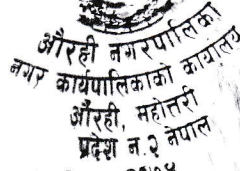 औरही नगरपालिका
नगर कार्यपालिकाको कार्यालय
औरही, महोत्तरी
प्रदेश न. २ नेपाल